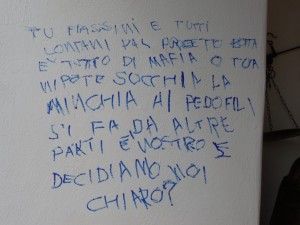 TU MASSINI E TUTTI
LONTANI DAL PROGETTO
È TUTTO DI MAFIA O TUA
NIPOTE SUCCHIA LA
MINCHIA AI PEDOFILI
SI FA DA ALTRE
PARTI È NOSTRO E
DECIDIAMO NOI
CHIARO?